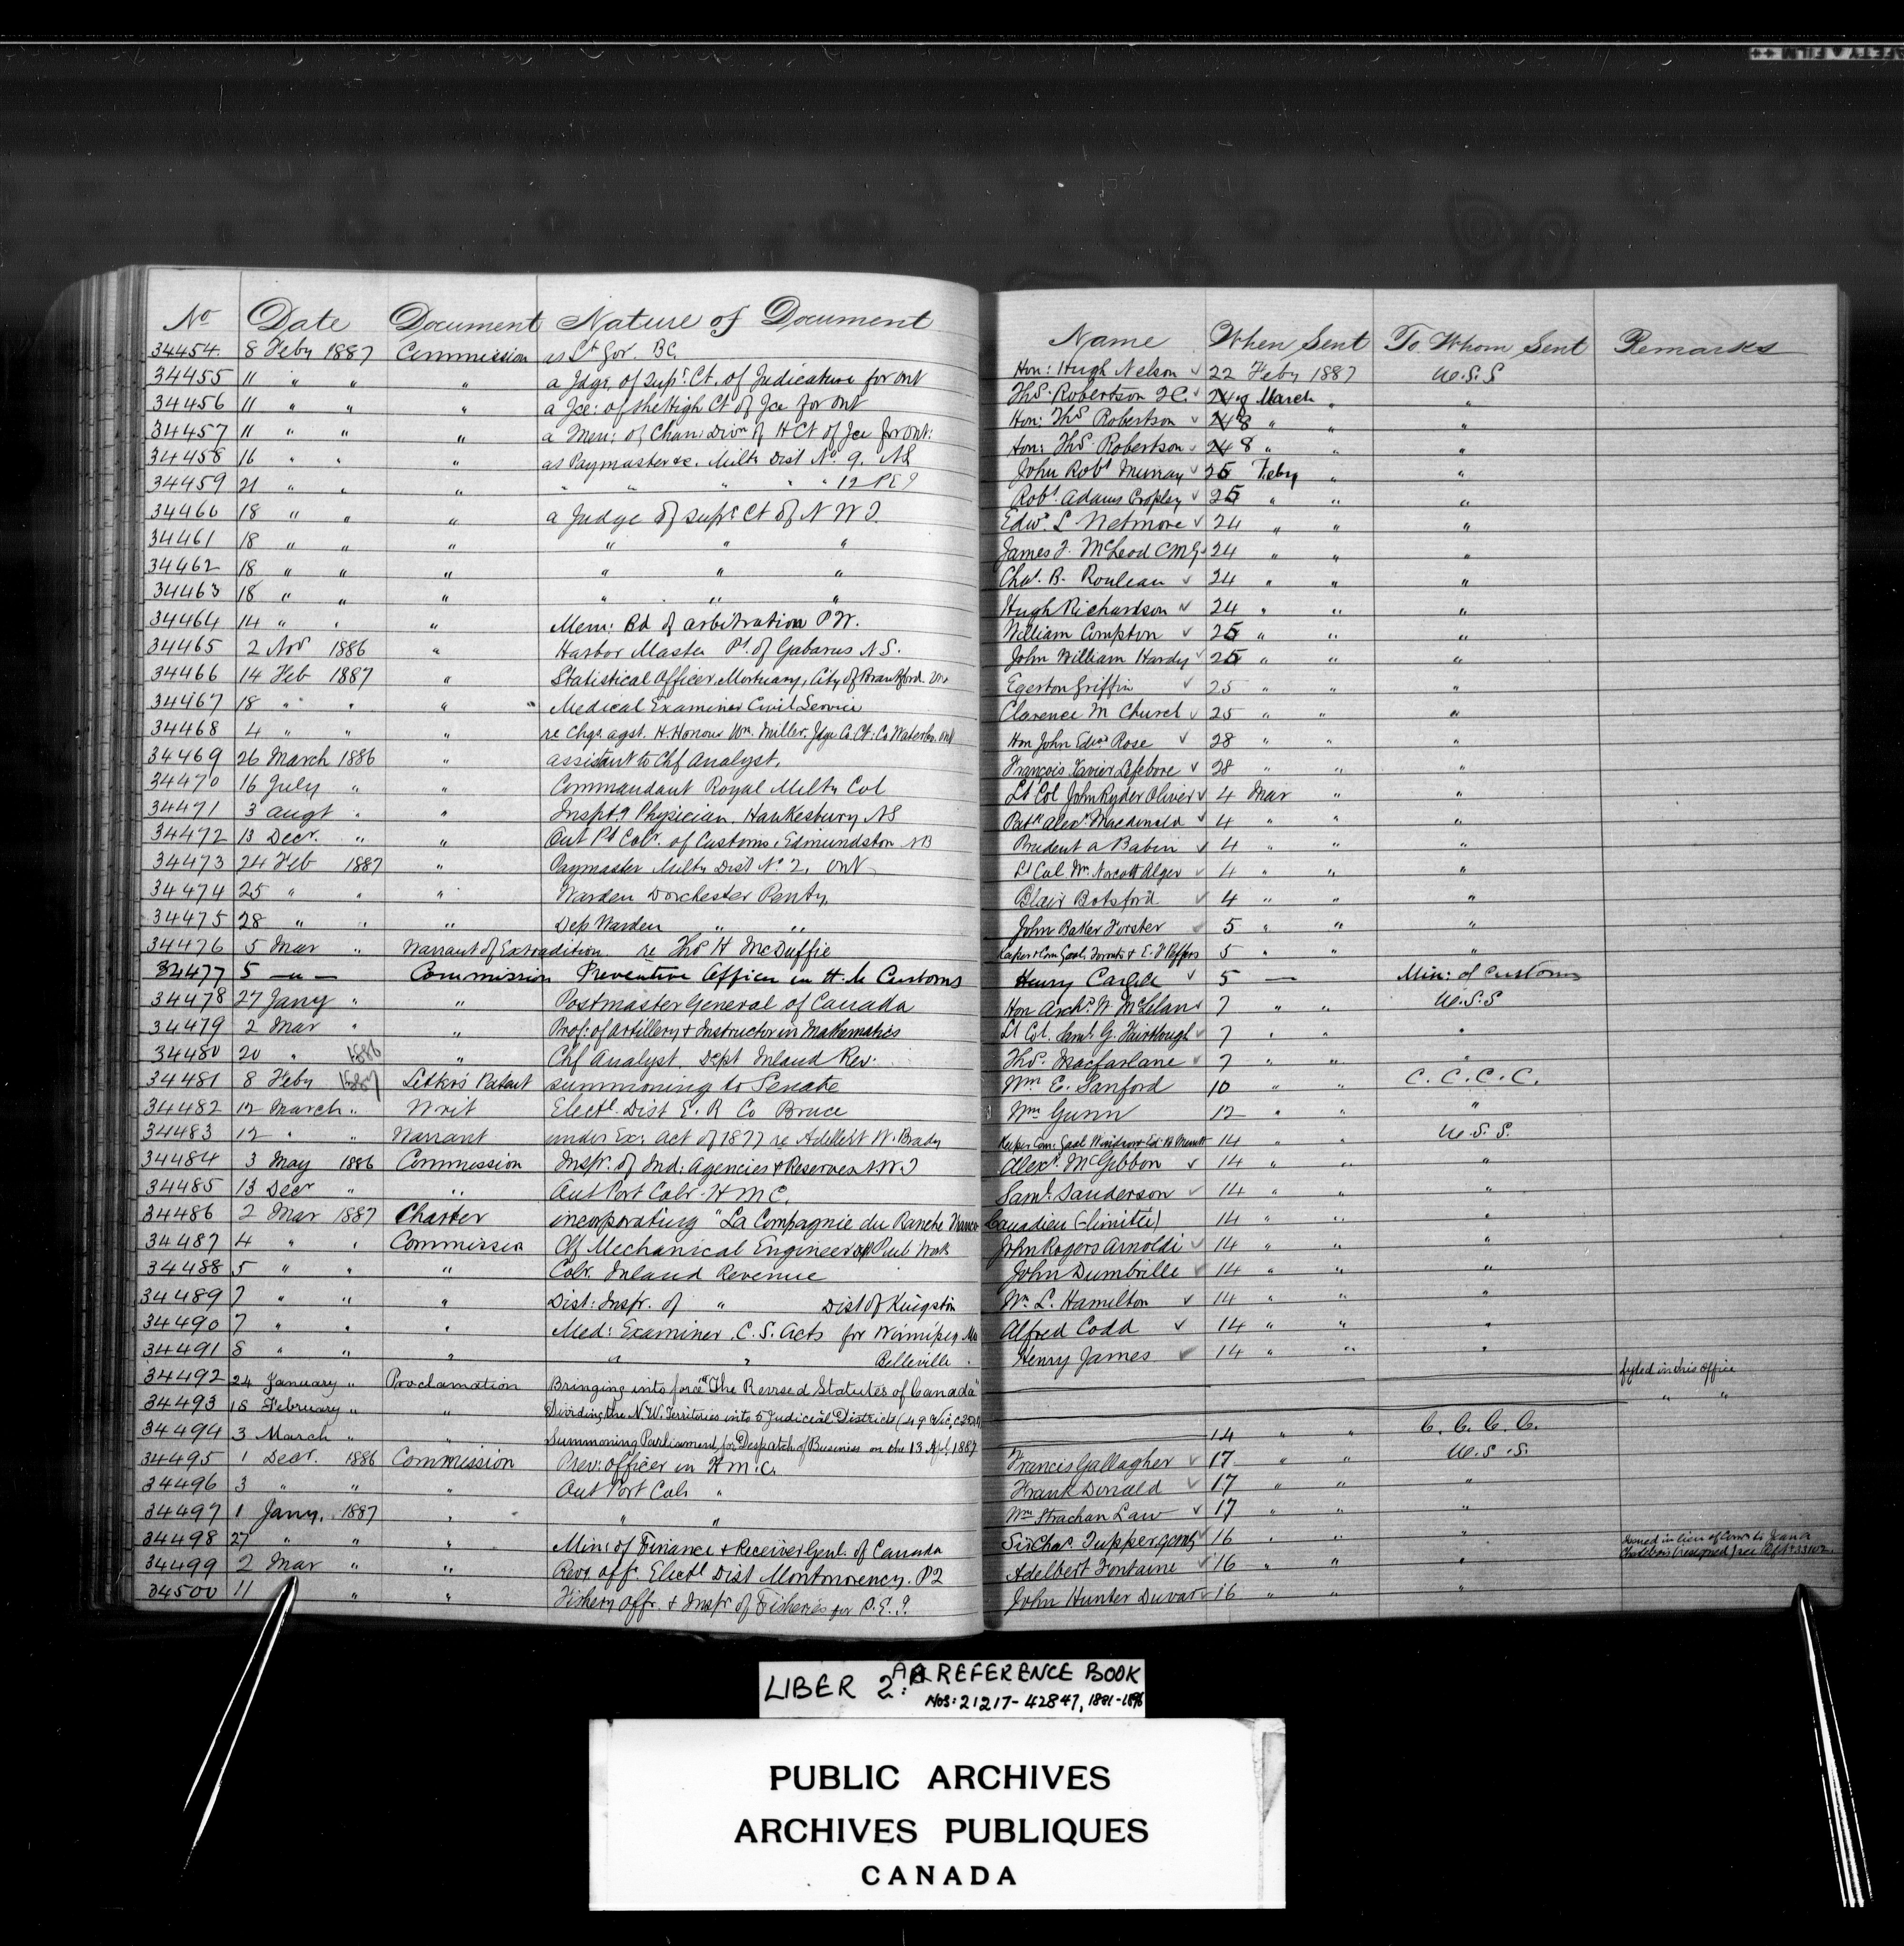 No Date Document Nature of Document Name When Sent To Whom Sent Remarks
34454. 8 Feby 1887 Commission as Lt Gov. BC. Hon: Hugh Nelson ✓ 22 Feby 1887 U.S.S
34455 11 " " " a Jdge. of Supr. Ct. of Judicature for Ont Thos. Robertson QC. ✓ 8 March " "
34456 11 " " " a Jce: of the High Ct of Jce for Ont Hon: Thos Robertson ✓ 8 " " "
34457 11 " " " a Mem: of Chan: Divn of H Ct of Jce for Ont: Hon: Thos. Robertson ✓ 8 " " "
34458 16 " " " as Paymaster &c. Milty Dist No. 9. NS John Robt Murray ✓ 25 Feby " "
34459 21 " " " " " " " " 12 PEI Robt. Adams Cropley ✓ 25 " " "
34460 18 " " " a Judge of Supr. Ct of N W T. Edwd. L Wetmore ✓ 24 " " "
34461 18 " " " " " " James F. McLeod CMG 24 " " "
34462 18 " " " " " " Chas. B. Rouleau ✓ 24 " " "
34463 18 " " " " " " Hugh Richardson ✓ 24 " " "
34464 14 " " " Mem: Bd of arbitration P W. William Compton ✓ 25 " " "
34465 2 Nov 1886 " Harbor Master Pt. of Gabarus N S. John William Hardy ✓ 25 " " "
34466 14 Feb 1887 " Statistical Officer Mortuary, City of Brantford Ont Egerton Griffin ✓ 25 " " "
34467 18 " " " Medical Examiner Civil Service Clarence M Church ✓ 25 " " "
34468 4 " " " re Chgs agst. H. Honour Wm. Miller. Jdge Co. Ct: Co Waterloo. Ont Hon John Edwd Rose ✓ 28 " " "
34469 26 March 1886 " assistant to Chf Analyst. François Xavier Lefebvre ✓ 28 " " "
34470 16 July " " Commandant Royal Milty Col Lt Col John Ryder Oliver ✓ 4 Mar " "
34471 3 augt " " Inspt.g Physician. Hawkesbury NS Patk alexr Macdonald ✓ 4 " " "
34472 13 Decr. " " Out Pt Colr. of Customs, Edmundston NB Prudent a Babin ✓ 4 " " "
34473 24 Feb 1887 " Paymaster Milty Dist No. 2. Ont Lt Col Wm. Norcott Alger ✓ 4 " " "
34474 25 " " " Warden Dorchester Penty. Blair Botsford ✓ 4 " " "
34475 28 " " " Dep Warden " " John Baker Forster ✓ 5 " " "
34476 5 Mar " Warrant of Extradition. re Thos H McDuffie Keeper Com Gaol, Toronto & 5 " " "
34477 5 —"— Commission Preventive Officer in H. M Customs Henry Carlile ✓ 5 — Min: of Customs
34478 27 Jany " " Postmaster General of Canada Hon Archd. W McLelan ✓ 7 " " U.S.S
34479 2 Mar " " Prof: of Artillery & Instructor in Mathematics Lt Col. Saml. G. Fairtlough ✓ 7 " " "
34480 20 " 1886 " Chf Analyst. Dept Inland Rev: Thos. Macfarlane ✓ 7 " " "
34481 8 Feby 1887 Letters Patent summoning to Senate Wm E. Sanford 10 " " C. C. C. C.
34482 12 March " Writ Electl. Dist E. R Co Bruce Wm Gunn 12 " " "
34483 12 " " Warrant under Ex: Act of 1877 re Adelbert W. Brady Keeper Com: Gaol Windsor 14 " " U.S.S.
34484 3 May 1886 Commission Inspr. of Ind: Agencies & Reserves N.W.T Alexr. McGibbon ✓ 14 " " "
34485 13 Decr " " Out Port Colr. H M C. Saml. Sanderson ✓ 14 " " "
34486 2 Mar 1887 Charter incorporating "La Compagnie du Ranche Franco Canadien (limitée) 14 " " "
34487 4 " " Commission Chf Mechanical Engineer Dept Pub Works John Rogers Arnoldi ✓ 14 " " "
34488 5 " " " Colr. Inland Revenue John Dumbrille ✓ 14 " " "
34489 7 " " " Dist: Inspr. of " Dist of Kingston Wm L. Hamilton ✓ 14 " " "
34490 7 " " " Med: Examiner. C. S. Acts for Winnipeg Ma Alfred Codd ✓ 14 " " "
34491 8 " " " " " Belleville Henry James ✓ 14 " " "
34492 24 January " Proclamation Bringing into force "The Revised Statutes of Canada" fyled in this office
34493 18 February " " Dividing the N.W. Territories into 5 Judicial Districts (49 Vic, c 25 " "
34494 3 March " " Summoning Parliament for Despatch of Business on the 13 Apl. 1887 14 " " C. C. C. C.
34495 1 Decr. 1886 Commission Prev: officer in H M C. Francis Gallagher ✓ 17 " " U.S.S.
34496 3 " " " Out Port Colr " Frank Donald ✓ 17 " " "
34497 1 Jany. 1887 " " " Wm Strachan Law ✓ 17 " " "
34498 27 " " " Min: of Finance & Receiver Genl. of Canada Sir Chas Tupper GCMG ✓ 16 " " "
34499 2 Mar " " Revg. offr. Electl Dist Montmorency. PQ Adelbert Fontaine ✓ 16 " " " Issued in lieu of Com to Jean (resigned) see
34500 11 " " " Fishery offr. & Inspr of Fisheries for P. E. I. John Hunter Duvar ✓ 16 " " "
LIBER 2A: REFERENCE BOOK
NOS: 21217-42847, 1881-1896
PUBLIC ARCHIVES
ARCHIVES PUBLIQUES
CANADA